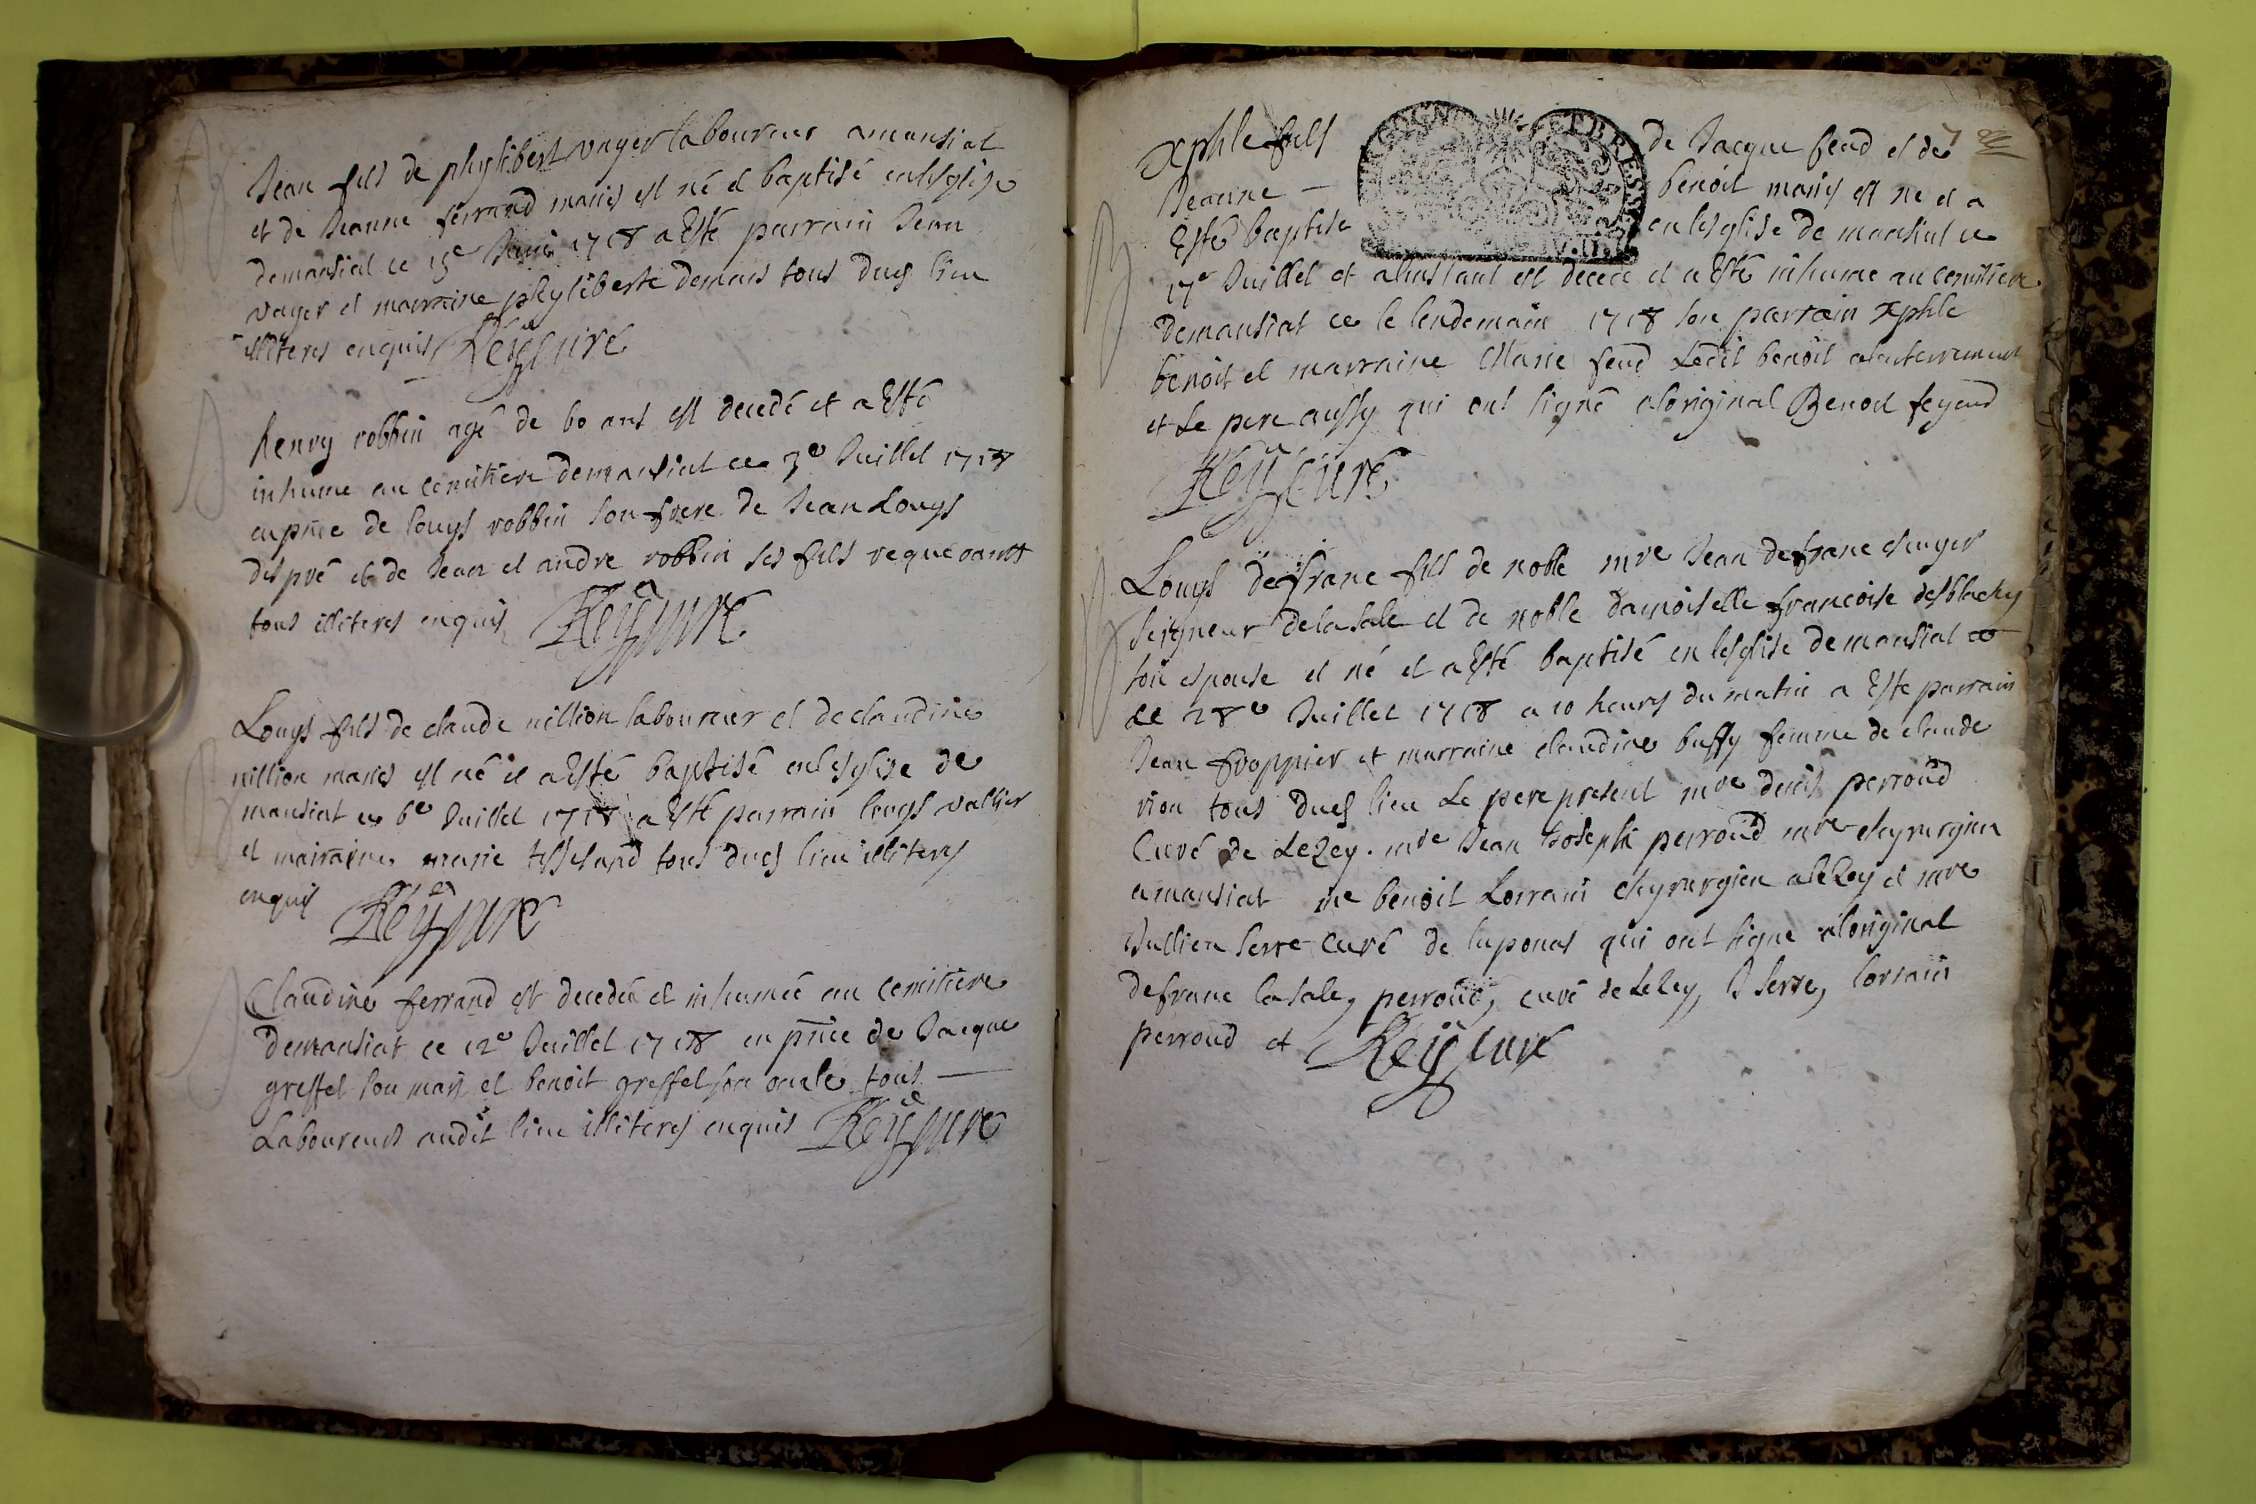 Jean fils de phylibert vuyer laboureur a mansiat
et de Jeanne ferrand mariés est né et baptisé en lesglise
de mansiat ce 15e Juin 1718 a Esté parrain Jean
vuyer et marraine phyliberte demais tous dud lieu
illiteres enquis Rey curé
henry robbin agé de 60 ans est decedé et a Esté
inhumé au cemitiere de mansiat ce 3e Juillet 1718
en pnce de louys robbin son frere de Jean Louys
dupré et de Jean et andre robbin ses fils requerants
tous illiteres enquis Rey curé
Louys fils de claude nillion laboureur et de claudine
nillion mariés est né et a Esté baptisé en lesglise de
mansiat ce 6e Juillet 1718 a Esté parrain louys vallier
et mairaine marie tisserand tous dud lieu illiteres
enquis Rey curé
Claudine ferrand est decedée et inhumée au cemitiere
de mansiat ce 12e Juillet 1718 en pnce de Jacque
greffet son mary et benoit greffet son oncle tous
Laboureurs audit lieu illiteres enquis Rey curé
xphle fils de Jacque feud et de
Jeanne benoit mariés est né et a
Esté baptisé en lesglise de mansiat ce
17e Juillet et a linstant est decedé et a Esté inhumé au cemitiere
de mansiat ce le lendemain 1718 son parrain xphle
benoit et marraine Marie feud Ledit benoit a lenterrement
et Le pere aussy qui ont signé a loriginal Benoit feyeud
Rey curé
Louys defranc fils de noble mre Jean defranc escuyer
seigneur de la sale et de noble damoiselle francoise desblachy
son espouse est né et a Esté baptisé en lesglise de mansiat ce
28e Juillet 1718 a 10 heures du matin a Esté parrain
Jean froppier et marraine claudine buffy femme de claude
rion tous dud lieu Le pere present mre denis perroud
Curé de Lezey mre Jean Joseph perroud mre chyrurgien
a mansiat me benoit Lorrain chyrurgien a lezey et mre
Jullien serre curé de luponas qui ont signé a loriginal
defranc la sale, perroud, curé de Lezey, J serre, lorrain
perroud et Rey curé